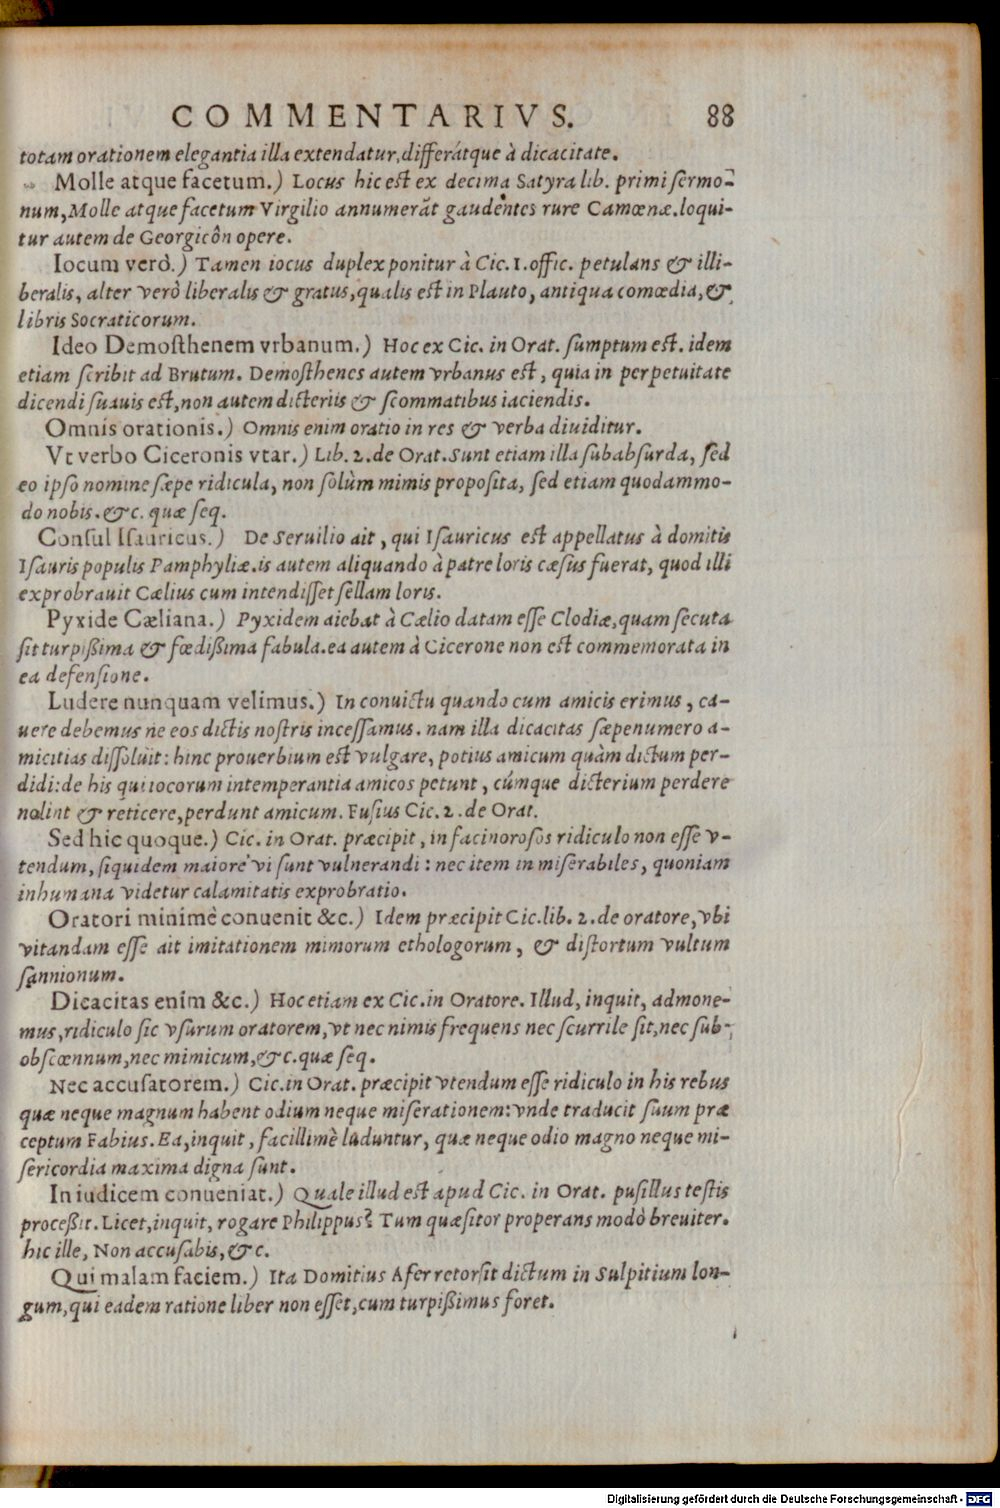 COMMENTARIVS. 88
totam orationem elegantia illa extendatur, differátque à dicacitate.
Molle atque facetum.) Locus hic est ex decima Satyra lib. primi sermo-
num, Molle atque facetum Virgilio annumerãt gaudentes rure Camœnæ. loqui-
tur autem de Georgicôn opere.
Iocum verò.) Tamen iocus duplex ponitur à Cic. 1. offic. petulans & illi-
beralis, alter verò liberalis & gratus, qualis est in Plauto, antiqua comœdia, &
libris Socraticorum.
Ideo Demosthenem vrbanum.) Hoc ex Cic. in Orat. sumptum est. idem
etiam scribit ad Brutum. Demosthenes autem vrbanus est, quia in perpetuitate
dicendi suauis est, non autem dicteriis & scommatibus iaciendis.
Omnis orationis.) Omnis enim oratio in res & verba diuiditur.
Vt verbo Ciceronis vtar.) Lib. 2. de Orat. Sunt etiam illa subabsurda, sed
eo ipso nomine sæpe ridicula, non solùm mimis proposita, sed etiam quodammo-
do nobis. &c. quæ seq.
Consul Isauricus.) De Seruilio ait, qui Isauricus est appellatus à domitis
Isauris populis Pamphyliæ. is autem aliquando à patre loris cæsus fuerat, quod illi
exprobrauit Cælius cum intendisset sellam loris.
Pyxide Cæliana.) Pyxidem aiebat à Cælio datam esse Clodiæ, quam secuta
sit turpißima & fœdißima fabula. ea autem à Cicerone non est commemorata in
ea defensione.
Ludere nunquam velimus.) In conuictu quando cum amicis erimus, ca-
uere debemus ne eos dictis nostris incessamus. nam illa dicacitas sæpenumero a-
micitias dissoluit: hinc prouerbium est vulgare, potius amicum quàm dictum per-
didi: de his qui iocorum intemperantia amicos petunt, cúmque dicterium perdere
nolint & reticere, perdunt amicum. Fusius Cic. 2. de Orat.
Sed hic quoque.) Cic. in Orat. præcipit, in facinorosos ridiculo non esse v-
tendum, siquidem maiore vi sunt vulnerandi: nec item in miserabiles, quoniam
inhumana videtur calamitatis exprobratio.
Oratori minimè conuenit &c.) Idem præcipit Cic. lib. 2. de oratore, vbi
vitandam esse ait imitationem mimorum ethologorum, & distortum vultum
sannionum.
Dicacitas enim &c.) Hoc etiam ex Cic. in Oratore. Illud, inquit, admone-
mus, ridiculo sic vsurum oratorem, vt nec nimis frequens nec scurrile sit, nec sub-
obscœnnum, nec mimicum, &c. quæ seq.
Nec accusatorem.) Cic. in Orat. præcipit vtendum esse ridiculo in his rebus
quæ neque magnum habent odium neque miserationem: vnde traducit suum præ
ceptum Fabius. Ea, inquit, facillimè luduntur, quæ neque odio magno neque mi-
sericordia maxima digna sunt.
In iudicem conueniat.) Quale illud est apud Cic. in Orat. pusillus testis
proceßit. Licet, inquit, rogare Philippus? Tum quæsitor properans modò breuiter.
hic ille, Non accusabis, &c.
Qui malam faciem.) Ita Domitius Afer retorsit dictum in Sulpitium lon-
gum, qui eadem ratione liber non esset, cum turpißimus foret.
Digitalisierung gefördert durch die Deutsche Forschungsgemeinschaft - DFG